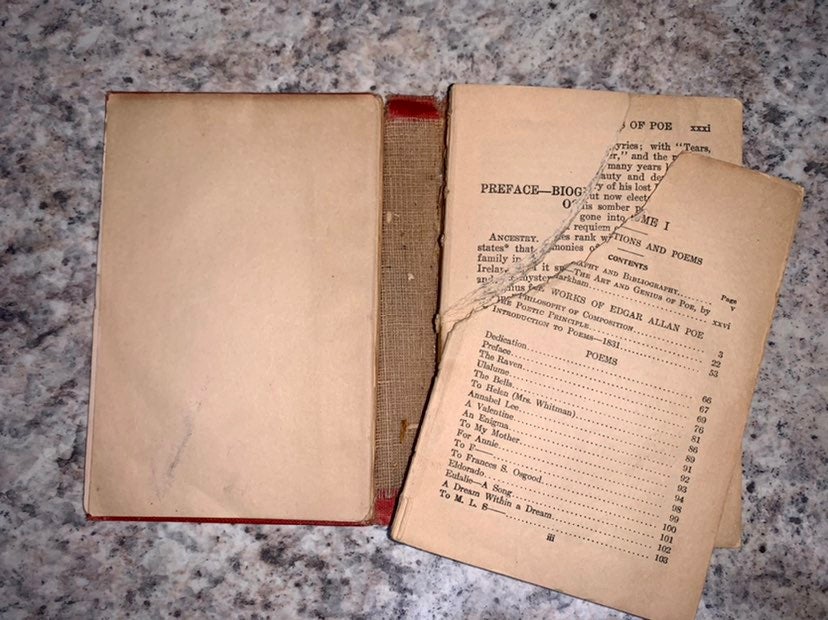 S OF POE xxxi
yrics; with "Tears,
er," and the
many years
auty and
ry of his lost
ut now elect
is somber
gone into
requiem
PREFACE—BIOG
ANCESTRY.
states* that
family in
Irelan
and
ME I
TIONS AND POEMS
CONTENTS
Page
GRAPHY AND BIBLIOGRAPHY v
THE ART AND GENIUS OF POE, by
arkham xxvi
WORKS OF EDGAR ALLAN POE
PHILOSOPHY OF COMPOSITION 3
THE POETIC PRINCIPLE 22
INTRODUCTION TO POEMS—1831 53
POEMS
Dedication 66
Preface 67
The Raven 69
Ulalume 76
The Bells 81
To Helen (Mrs. Whitman) 86
Annabel Lee 89
A Valentine 91
An Enigma 92
To My Mother 93
For Annie 94
To F—— 98
To Frances S. Osgood 99
Eldorado 100
Eulalie—A Song 101
A Dream Within a Dream 102
To M. L. S—— 103
iii